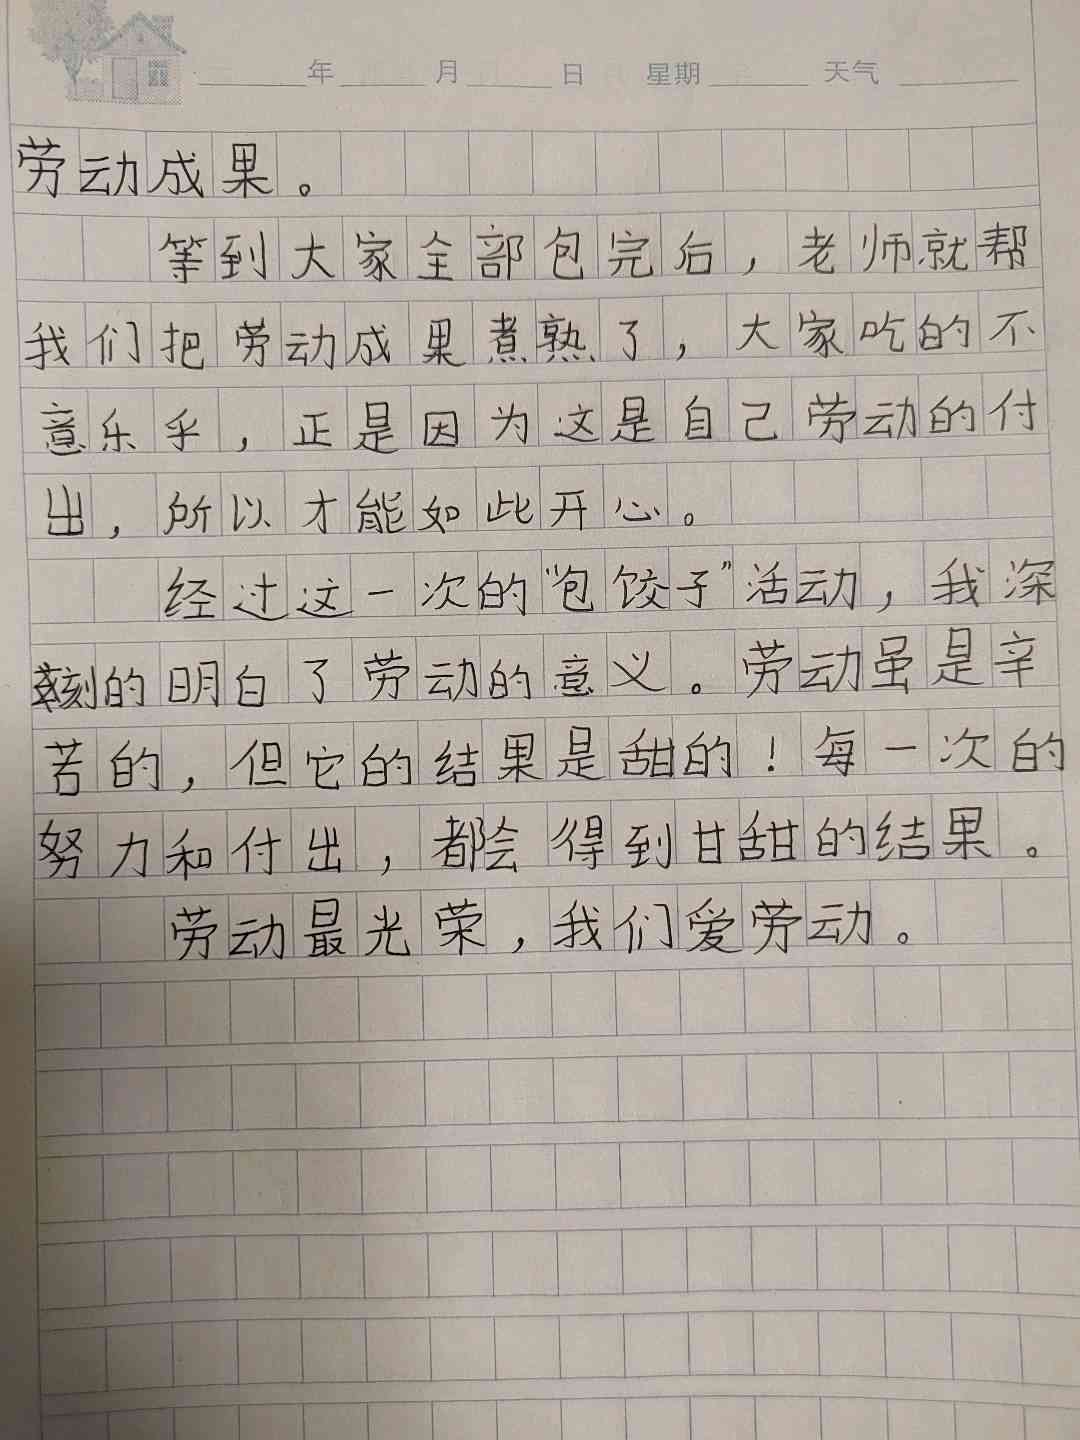 年 月 日 星期 天气
劳动成果。
等到大家全部包完后，老师就帮
我们把劳动成果煮熟了，大家吃的不
意乐乎，正是因为这是自己劳动的付
出，所以才能如此开心。
经过这一次的“包饺子”活动，我深
刻的明白了劳动的意义。劳动虽是辛
苦的，但它的结果是甜的！每一次的
努力和付出，都会得到甘甜的结果。
劳动最光荣，我们爱劳动。